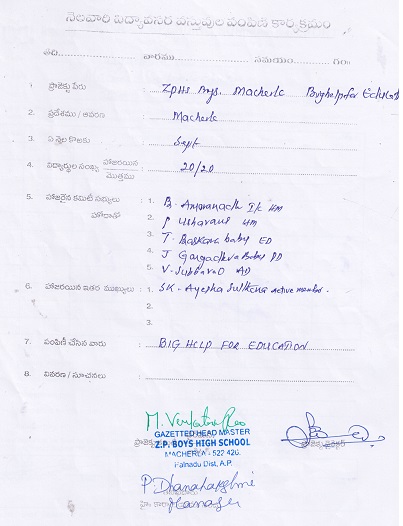 నెలవారి విద్యావసర వస్తువుల పంపిణి కార్యక్రమం
తేది. వారము సమయం గం॥
1 ప్రాజెక్టు పేరు : ZPHS Boys. Macherla Bighelpfor Educati
2. ప్రదేశము / ఆవరణ : Macherla
3. ఏ నెల కొఱకు : Sept
4. విద్యార్థుల సంఖ్య హాజరయిన / మొత్తము : 20/20
5. హాజరైన కమిటీ సభ్యులు హోదాతో : 1. B. Amaranadh I/c HM
2. P Usharani HM
3. T. Baskara baby ED
4. J Gangadhra Babu PD
5. V. Subbarao AD
6. హాజరయిన ఇతర ముఖ్యులు : 1. SK. Ayesha Sulthana active member.
2.
3.
7. పంపిణీ చేసిన వారు : BIG HELP FOR EDUCATION
8. వివరణ / సూచనలు :
M. Venkateswara Rao
GAZETTED HEAD MASTER
Z.P. BOYS HIGH SCHOOL
MACHERLA - 522 426.
Palnadu Dist, A.P.
P. Dhanalakshmi
Manager